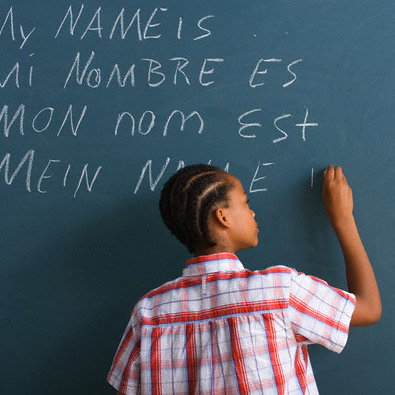 My NAME IS
Mi NOMBRE ES
MON nom Est
Mein NAME i